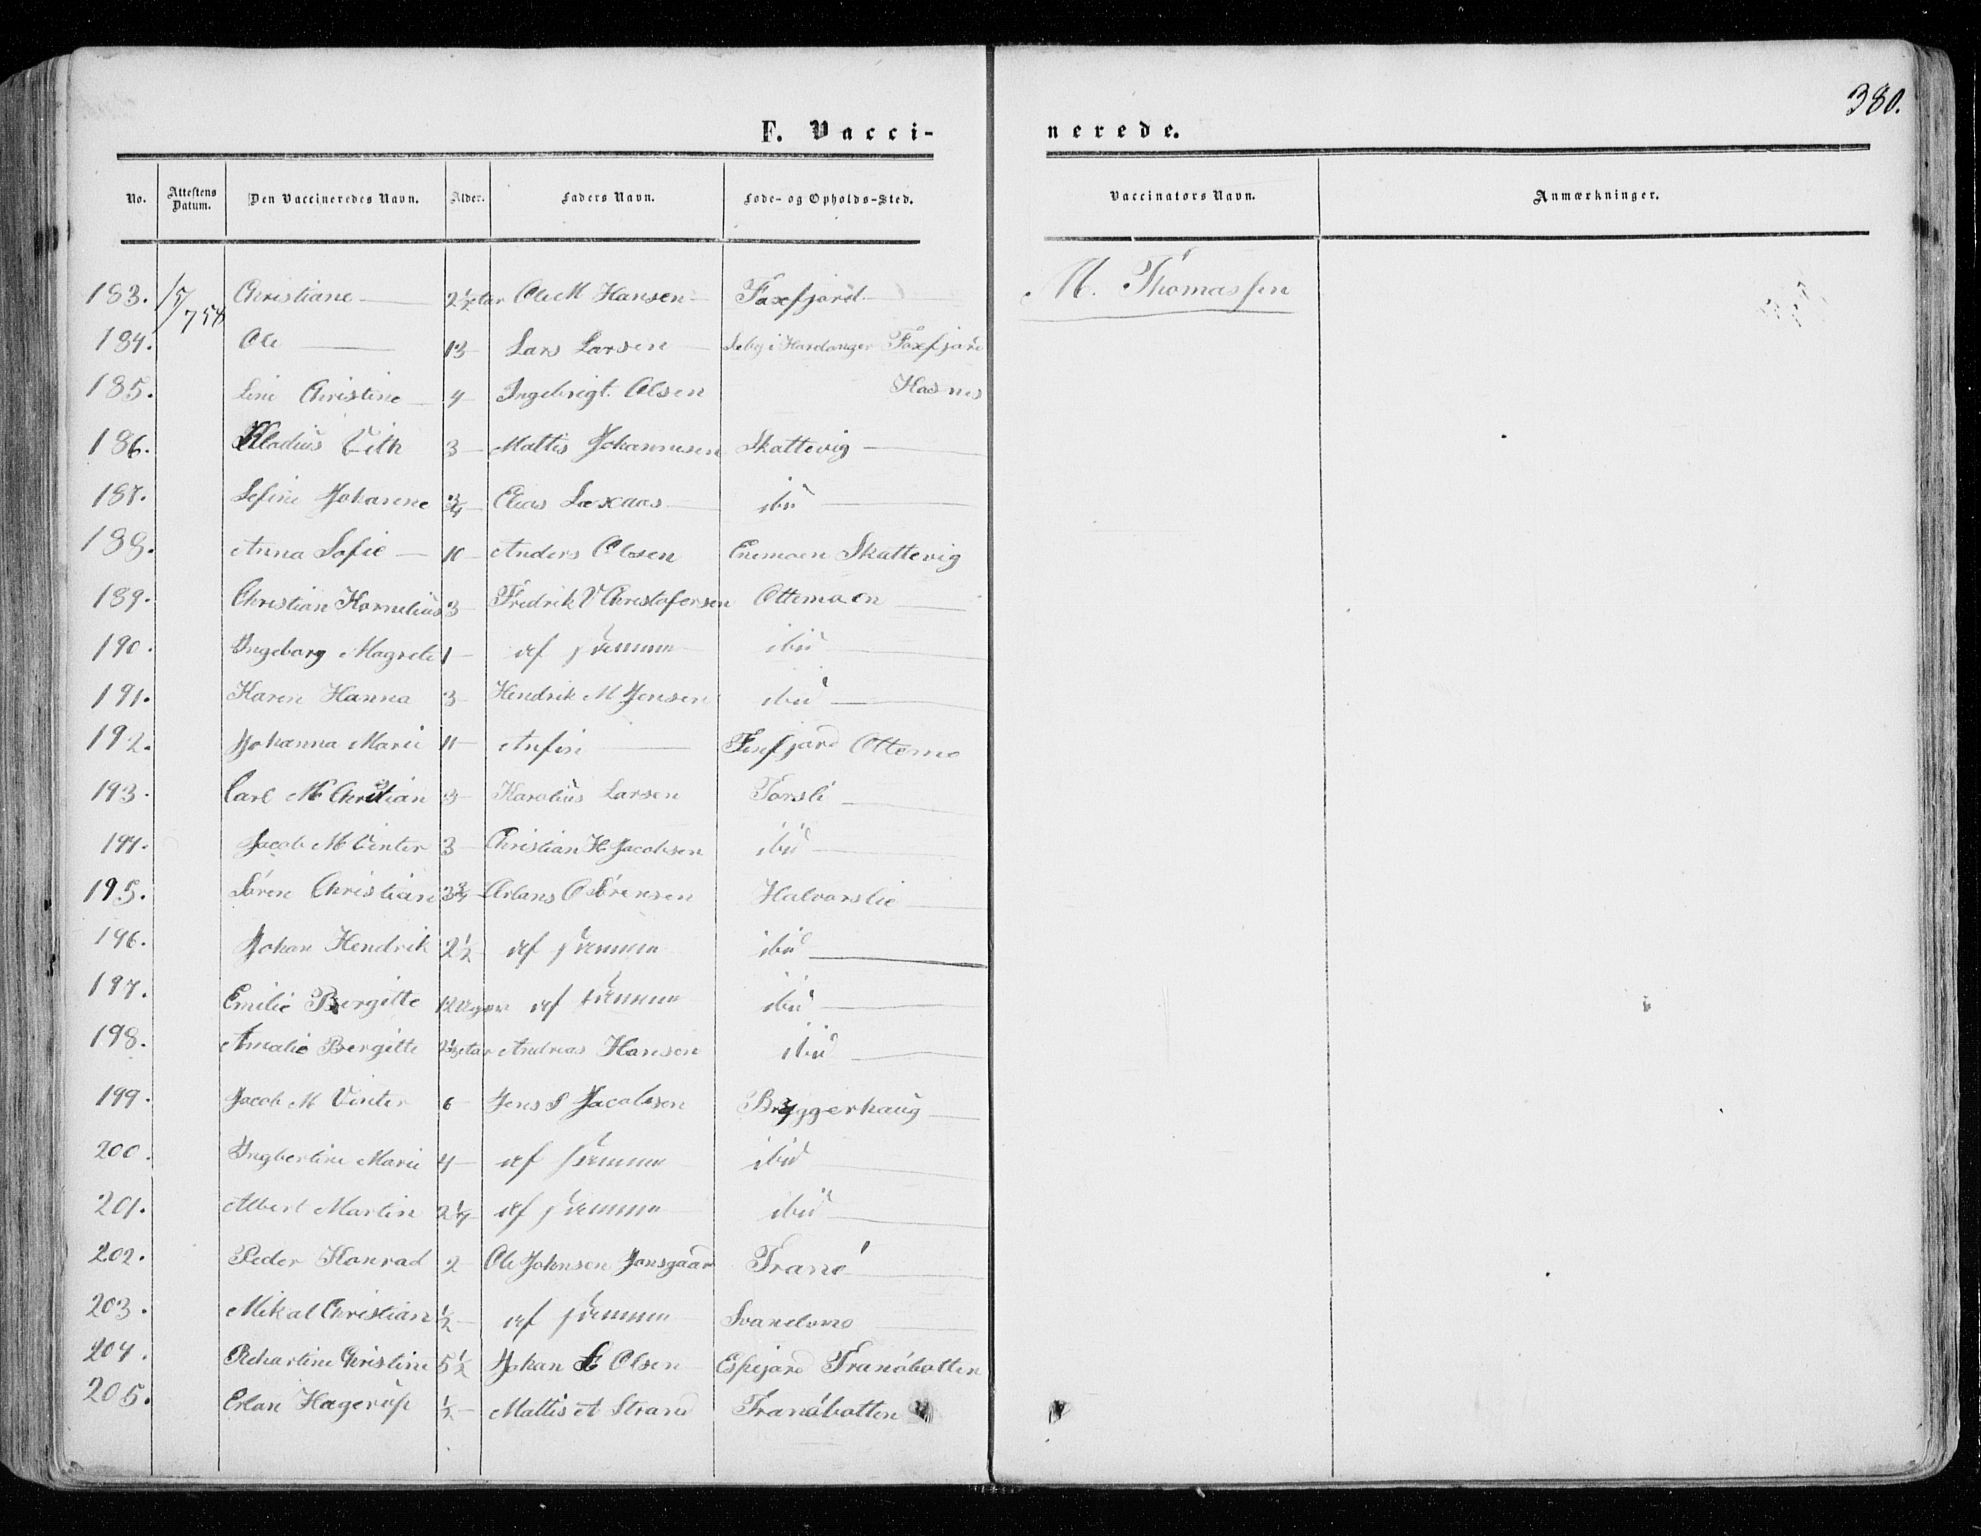 380.
F. Vacci-
nerede.
No. Attestens Datum. Den Vaccineredes Navn. Alder. Faders Navn. Føde- og Opholds-Sted. Vaccinators Navn. Anmærkninger.
183. 17/7 58 Christiane 2½ Ole M Hansen Faxfjord M. Thomassen
184. Ole 13 Lars Larsen i Hardanger Faxfjord
185. Line Christine 4 Ingebrigt Olsen Hasnes
186. Kladius Vith 3 Mattis Johannesen Skattevig
187. Sefine Johanne ¾ Elias Laxaas ibid
188. Anna Sofie 10 Anders Olsen Enemoen Skattevig
189. Christian Kornelius 3 Fredrik V Christofersen Ottemoen
190. Ingeborg Magrete 1 af samme ibid
191. Karen Hanna 3 Hendrik M Jensen ibid
192. Johanna Marie 11 Anfin Ottemo
193. Carl M Christian 3 Karolius Larsen Torsli
194. Jacob M Vinter 3 Christian H Jacobsen ibid
195. Sören Christian 3¾ O Sörensen Halvorslie
196. Johan Hendrik 2½ af samme ibid
197. Emilie Bergitte 12 Uger af samme ibid
198. Amalie Bergitte 2½ Andreas Hansen ibid
199. Jacob M Vinter 6 Jens S Jacobsen Bryggerhaug
200. Ingbertine Marie 4 af samme ibid
201. Albert Martin 2¼ af samme ibid
202. Peder Konrad 2 Ole Johnsen Jonsgaard Tranö
203. Mikal Christian ½ af samme Svandemo
204. Rekartine Christine 5½ Johan L Olsen Espejord Tranöbotten
205. Erlan Hagerup ½ Mattis A Strand Tranöbotten